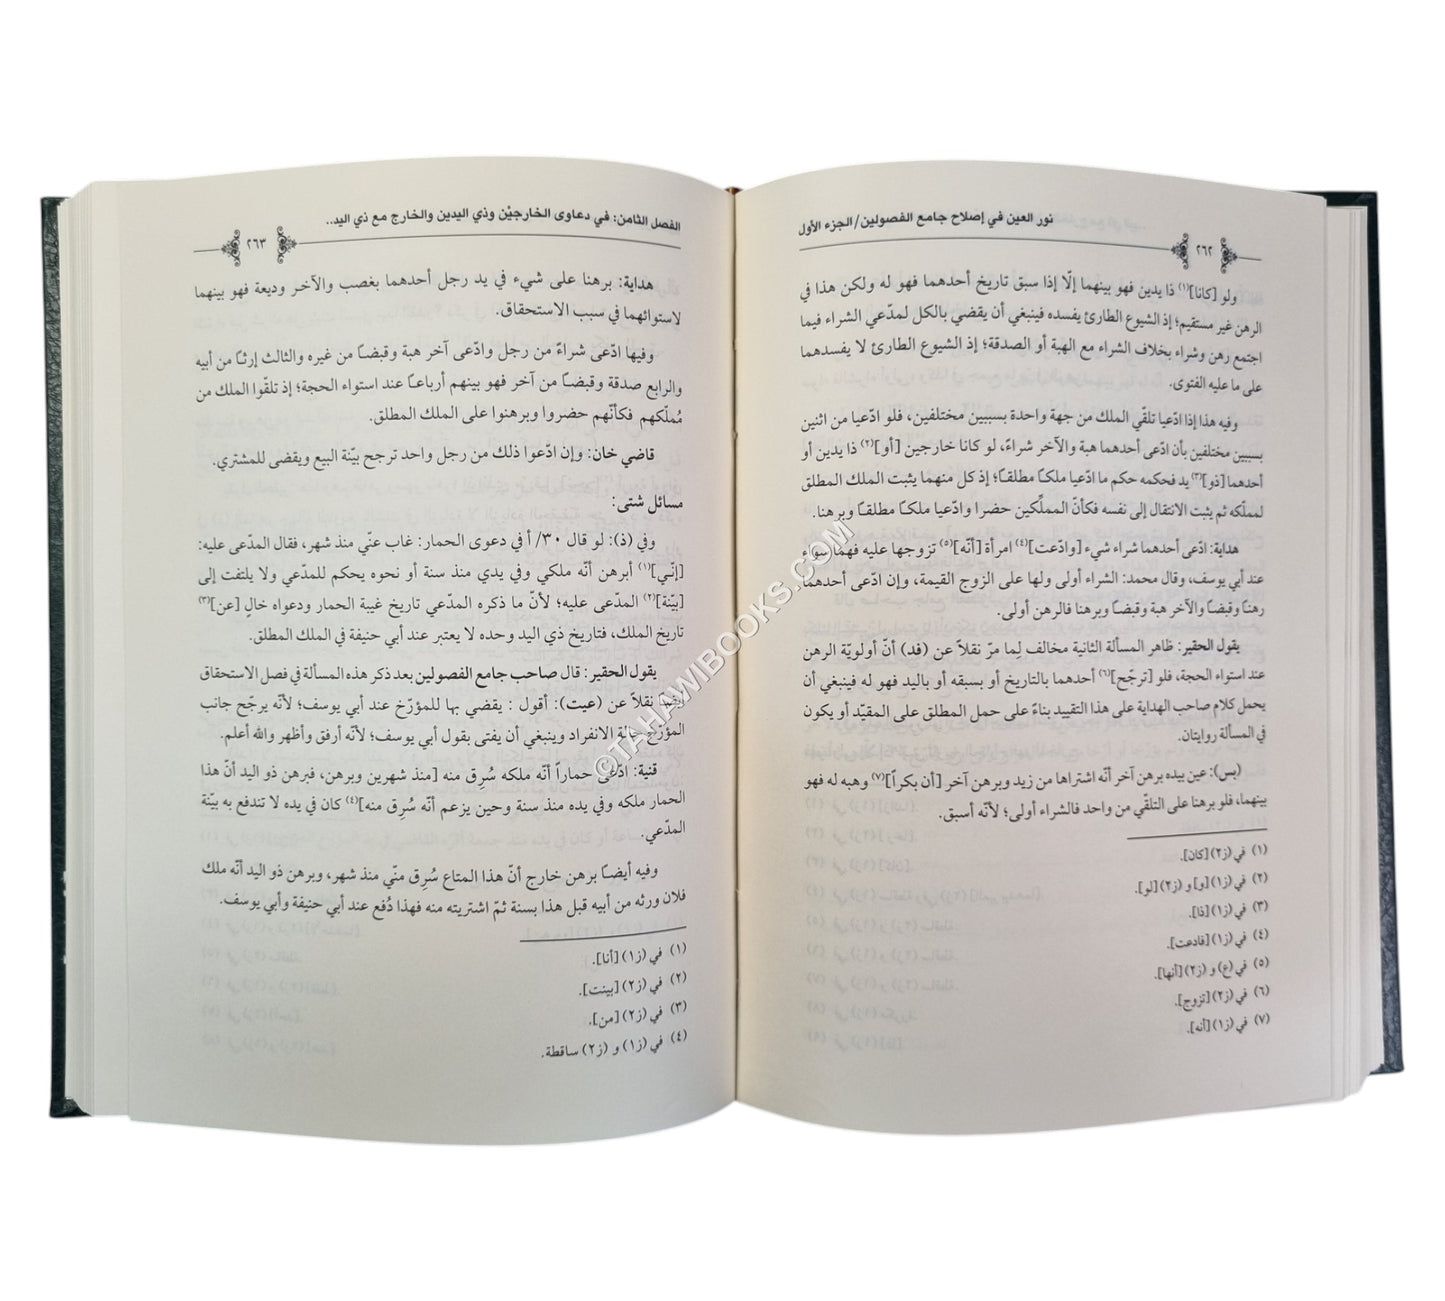 نور العين في إصلاح جامع الفصولين/ الجزء الأول
٢٦٢
ولو [كانا](١) ذا يدين فهو بينهما إلّا إذا سبق تاريخ أحدهما فهو له ولكن هذا في
الرهن غير مستقيم؛ إذ الشيوع الطارئ يفسده فينبغي أن يقضي بالكل لمدّعي الشراء فيما
اجتمع رهن وشراء بخلاف الشراء مع الهبة أو الصدقة؛ إذ الشيوع الطارئ لا يفسدهما
على ما عليه الفتوى.
وفيه هذا إذا ادّعيا تلقّي الملك من جهة واحدة بسببين مختلفين، فلو ادّعيا من اثنين
بسببين مختلفين بأن ادّعى أحدهما هبة والآخر شراءً، لو كانا خارجين [أو](٢) ذا يدين أو
أحدهما [ذو](٣) يد فحكمه حكم ما ادّعيا ملكًا مطلقًا؛ إذ كل منهما يثبت الملك المطلق
لمملّكه ثم يثبت الانتقال إلى نفسه فكأنّ المملِّكين حضرا وادّعيا ملكًا مطلقًا وبرهنا.
هداية: ادّعى أحدهما شراء شيء [وادّعت](٤) امرأة [أنّه](٥) تزوجها عليه فهما سواء
عند أبي يوسف، وقال محمد: الشراء أولى ولها على الزوج القيمة، وإن ادّعى أحدهما
رهنًا وقبضًا والآخر هبة وقبضًا وبرهنا فالرهن أولى.
يقول الحقير: ظاهر المسألة الثانية مخالف لِما مرّ نقلاً عن (فد) أنّ أولويّة الرهن
عند استواء الحجة، فلو [ترجّح](٦) أحدهما بالتاريخ أو بسبقه أو باليد فهو له فينبغي أن
يحمل كلام صاحب الهداية على هذا التقييد بناءً على حمل المطلق على المقيّد أو يكون
في المسألة روايتان.
(بس): عين بيده برهن آخر أنّه اشتراها من زيد وبرهن آخر [أن بكراً](٧) وهبه له فهو
بينهما، فلو برهنا على التلقّي من واحد فالشراء أولى؛ لأنّه أسبق.
(١) في (ز٢) [كان].
(٢) في (ز١) [و] و (ز٢) [لو].
(٣) في (ز١) [ذا].
(٤) في (ز١) [فادعت].
(٥) في (ع) و (ز٢) [أنها].
(٦) في (ز٢) [تزوج].
(٧) في (ز١) [أنه].
الفصل الثامن: في دعاوى الخارجيْن وذي اليدين والخارج مع ذي اليد..
٢٦٣
هداية: برهنا على شيء في يد رجل أحدهما بغصب والآخر وديعة فهو بينهما
لاستوائهما في سبب الاستحقاق.
وفيها ادّعى شراءً من رجل وادّعى آخر هبة وقبضًا من غيره والثالث إرثًا من أبيه
والرابع صدقة وقبضًا من آخر فهو بينهم أرباعًا عند استواء الحجة؛ إذ تلقّوا الملك من
مُملّكهم فكأنّهم حضروا وبرهنوا على الملك المطلق.
قاضي خان: وإن ادّعوا ذلك من رجل واحد ترجح بيّنة البيع ويقضى للمشتري.
مسائل شتى:
وفي (ذ): لو قال ٣٠/ أ في دعوى الحمار: غاب عنّي منذ شهر، فقال المدّعى عليه:
[إنّي](١) أبرهن أنّه ملكي وفي يدي منذ سنة أو نحوه يحكم للمدّعي ولا يلتفت إلى
[بيّنة](٢) المدّعى عليه؛ لأنّ ما ذكره المدّعي تاريخ غيبة الحمار ودعواه خالٍ [عن](٣)
تاريخ الملك، فتاريخ ذي اليد وحده لا يعتبر عند أبي حنيفة في الملك المطلق.
يقول الحقير: قال صاحب جامع الفصولين بعد ذكر هذه المسألة في فصل الاستحقاق
نقلاً عن (عيت): أقول : يقضي بها للمؤرّخ عند أبي يوسف؛ لأنّه يرجّح جانب
المؤرّخ حالة الانفراد وينبغي أن يفتى بقول أبي يوسف؛ لأنّه أرفق وأظهر والله أعلم.
قنية: ادّعى حماراً أنّه ملكه سُرِق منه [منذ شهرين وبرهن، فبرهن ذو اليد أنّ هذا
الحمار ملكه وفي يده منذ سنة وحين يزعم أنّه سُرِق منه](٤) كان في يده لا تندفع به بيّنة
المدّعي.
وفيه أيضًا برهن خارج أنّ هذا المتاع سُرِق منّي منذ شهر، وبرهن ذو اليد أنّه ملك
فلان ورثه من أبيه قبل هذا بسنة ثمّ اشتريته منه فهذا دُفع عند أبي حنيفة وأبي يوسف.
(١) في (ز١) [أنا].
(٢) في (ز٢) [بينت].
(٣) في (ز٢) [من].
(٤) في (ز١) و (ز٢) ساقطة.
©TAHAWIBOOKS.COM